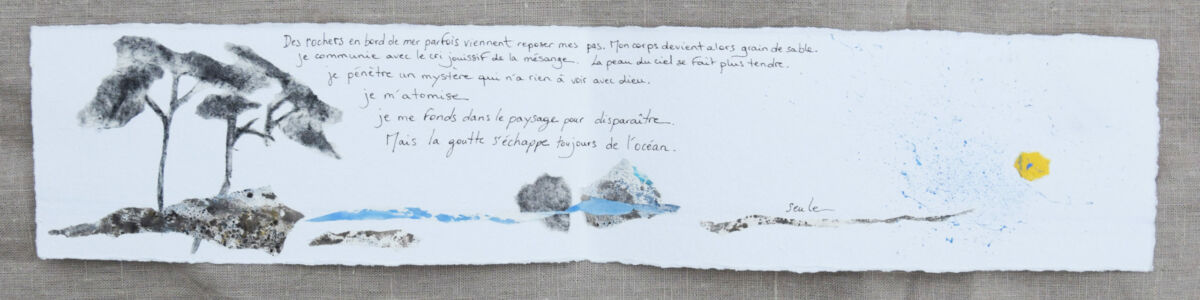 Des rochers en bord de mer parfois viennent reposer mes pas. Mon corps devient alors grain de sable.
je communie avec le cri jouissif de la mésange. La peau du ciel se fait plus tendre.
je pénètre un mystère qui n'a rien à voir avec dieu.
je m'atomise
je me fonds dans le paysage pour disparaître.
Mais la goutte s'échappe toujours de l'océan.
seule